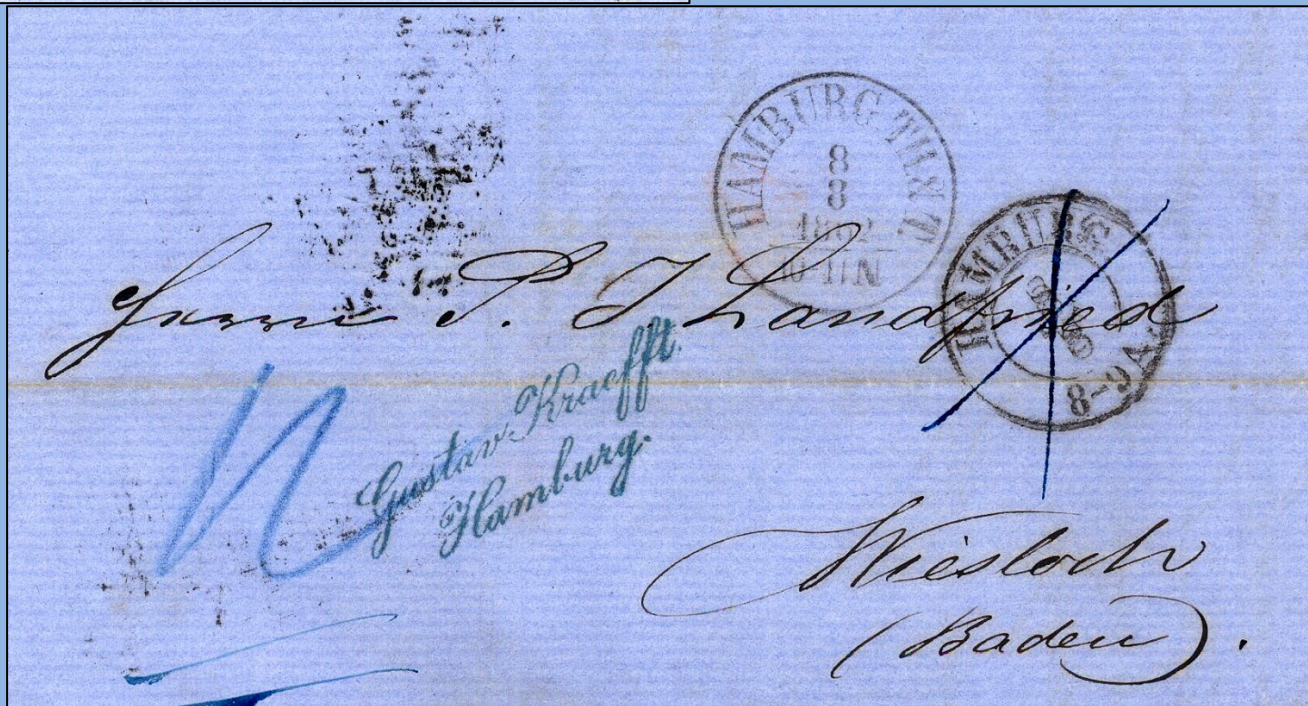 HAMBURG TH.&T.
8
8
1862
10-11 N
HAMBURG
8
8-9 A.
Herrn P. J. Landfried
Gustav Kraefft.
Hamburg.
Wiesloch
(Baden).